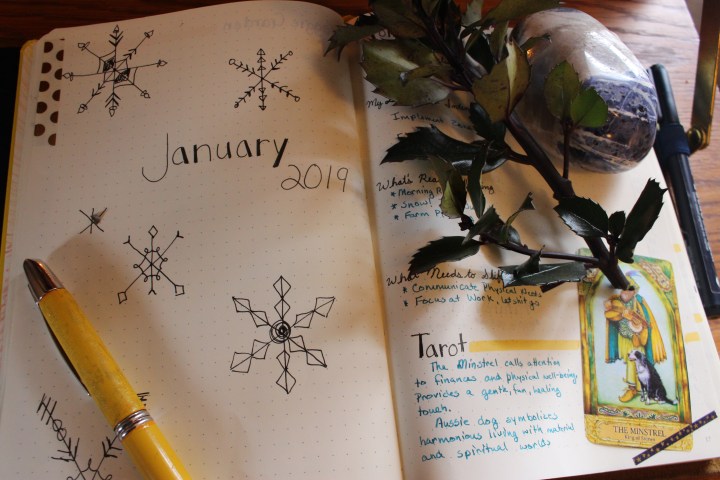 January
2019
My
Implement
What's
* Morning
* Snow!
* Farm
What Needs to
* Communicate Physical Needs
* Focus at Work, let shit go
Tarot
The Minstrel calls attention
to finances and physical well-being.
Provides a gentle, fun, healing
touch.
Aussie dog symbolizes
harmonious living with material
and spiritual worlds
THE MINSTREL